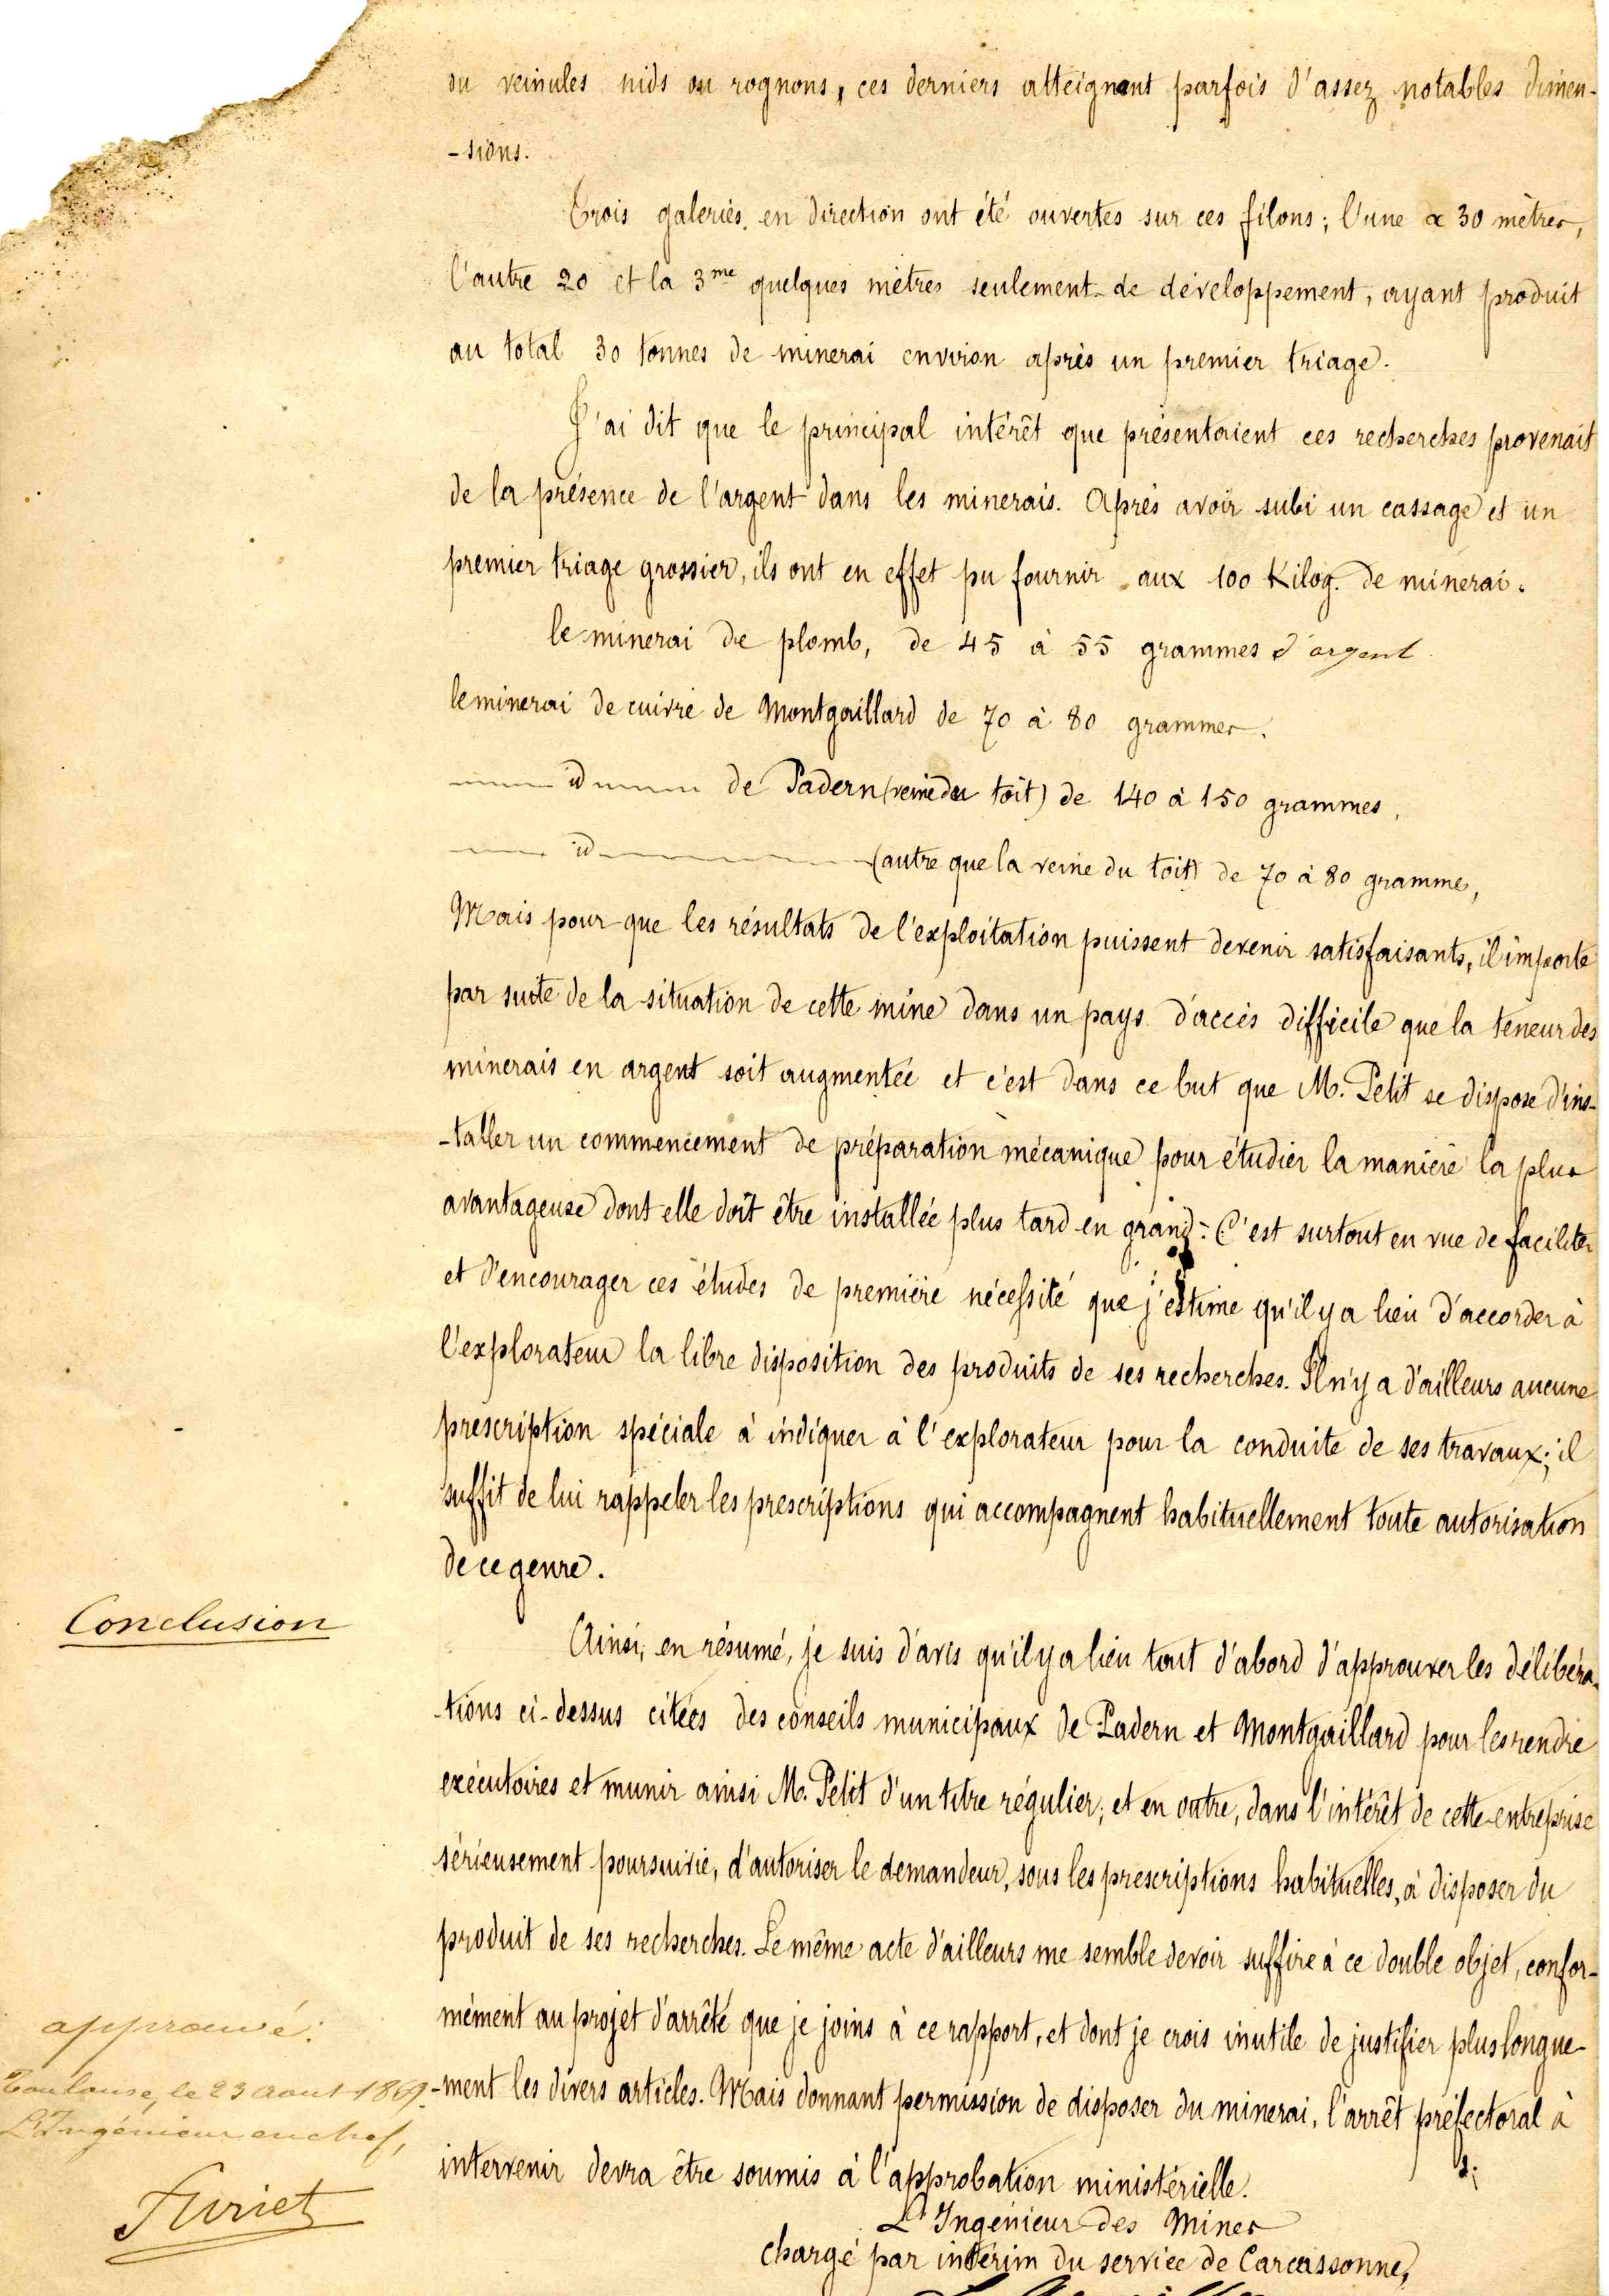 ou veinules nids ou rognons, ces derniers atteignant parfois d'assez notables dimen-
-sions.
Trois galeries en direction ont été ouvertes sur ces filons; l'une a 30 mètres,
l'autre 20 et la 3me quelques mètres seulement de développement, ayant produit
au total 30 tonnes de minerai environ après un premier triage.
J'ai dit que le principal intérêt que présentaient ces recherches provenait
de la présence de l'argent dans les minerais. Après avoir subi un cassage et un
premier triage grossier, ils ont en effet pu fournir aux 100 Kilog. de minerai.
le minerai de plomb, de 45 à 55 grammes d'argent
le minerai de cuivre de Montgaillard de 70 à 80 grammes.
id de Padern (veine du toit) de 140 à 150 grammes,
id (autre que la veine du toit) de 70 à 80 grammes,
Mais pour que les résultats de l'exploitation puissent devenir satisfaisants, il importe
par suite de la situation de cette mine dans un pays d'accès difficile que la teneur des
minerais en argent soit augmentée et c'est dans ce but que M. Petit se dispose d'ins-
-taller un commencement de préparation mécanique pour étudier la manière la plus
avantageuse dont elle doit être installée plus tard en grand. C'est surtout en vue de faciliter
et d'encourager ces études de première nécessité que j'estime qu'il y a lieu d'accorder à
l'explorateur la libre disposition des produits de ses recherches. Il n'y a d'ailleurs aucune
prescription spéciale à indiquer à l'explorateur pour la conduite de ses travaux; il
suffit de lui rappeler les prescriptions qui accompagnent habituellement toute autorisation
de ce genre.
Conclusion
Ainsi, en résumé, je suis d'avis qu'il y a lieu tout d'abord d'approuver les délibéra-
-tions ci-dessus citées des conseils municipaux de Padern et Montgaillard pour les rendre
exécutoires et munir ainsi M. Petit d'un titre régulier; et en outre, dans l'intérêt de cette entreprise
sérieusement poursuivie, d'autoriser le demandeur, sous les prescriptions habituelles, à disposer du
produit de ses recherches. Le même acte d'ailleurs me semble devoir suffire à ce double objet, confor-
mément au projet d'arrêté que je joins à ce rapport, et dont je crois inutile de justifier plus longue-
-ment les divers articles. Mais donnant permission de disposer du minerai, l'arrêt préfectoral à
intervenir devra être soumis à l'approbation ministérielle.
L'Ingénieur des Mines
chargé par intérim du service de Carcassonne,
approuvé:
Toulouse, le 23 aout 1869.
L'Ingénieur en chef,
Furiet